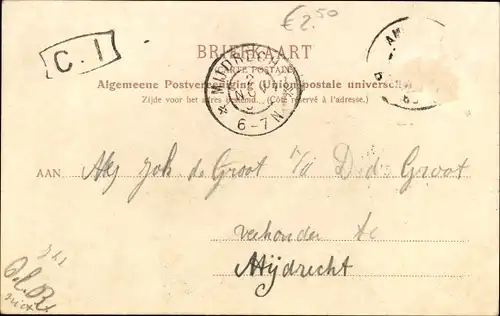 €2.50
C. I
BRIEFKAART
CARTE POSTALE
Algemeene Postvereeniging (Union postale universelle)
Zijde voor het adres bestemd. (Côté réservé à l'adresse.)
MIJDRECHT
NOV
6-7N
AM
AAN
Joh. de Groot Dd. Groot
te
Mijdrecht